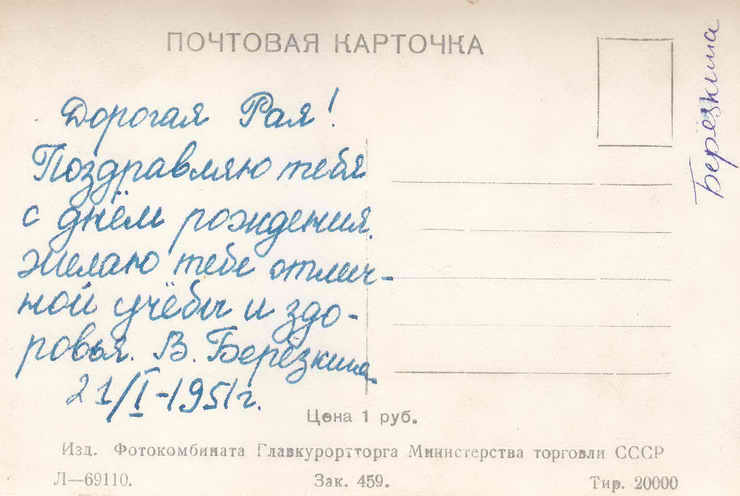 ПОЧТОВАЯ КАРТОЧКА
Дорогая Рая!
Поздравляю тебя
с днём рождения.
Желаю тебе отлич-
ной учёбы и здо-
ровья. В. Берёзкина
21/I-1951г.
Берёзкина
Цена 1 руб.
Изд. Фотокомбината Главкурортторга Министерства торговли СССР
Л—69110. Зак. 459. Тир. 20000